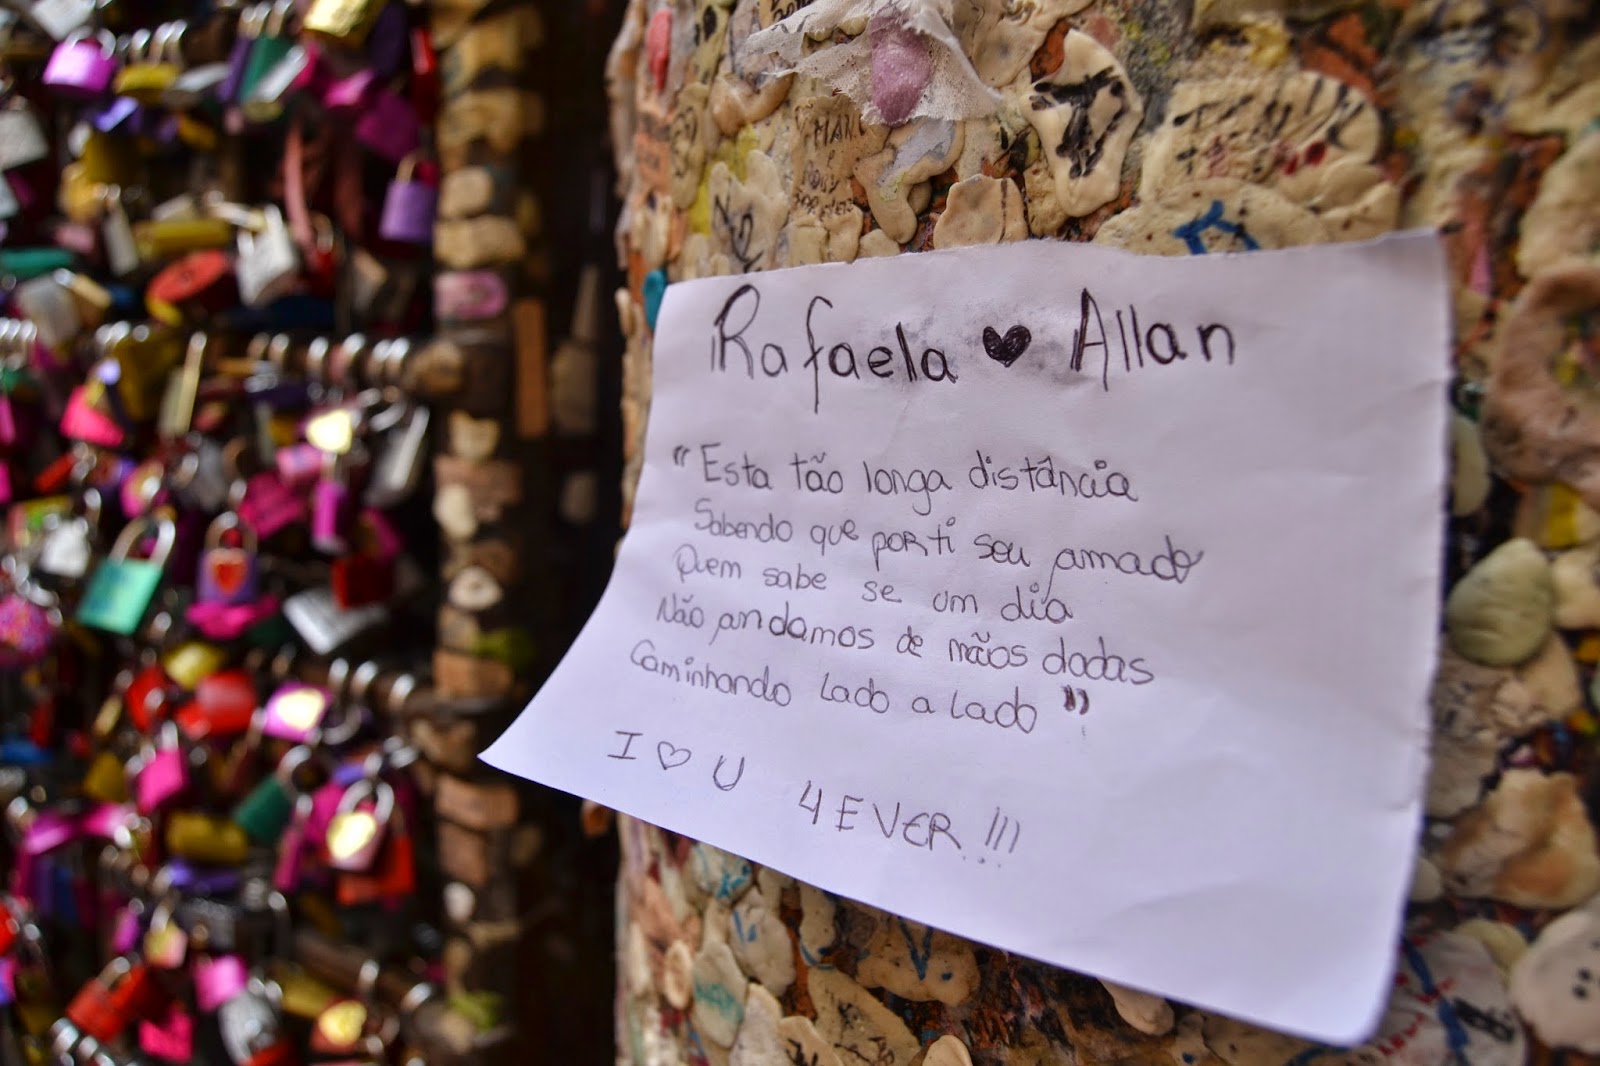 Rafaela ♥ Allan
"Esta tão longa distância
Sabendo que por ti sou amado
Quem sabe se um dia
Não andamos de mãos dadas
Caminhando lado a lado"
I ♡ U 4EVER!!!